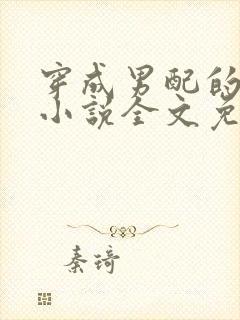 穿成男配的
小说全文免
秦琦